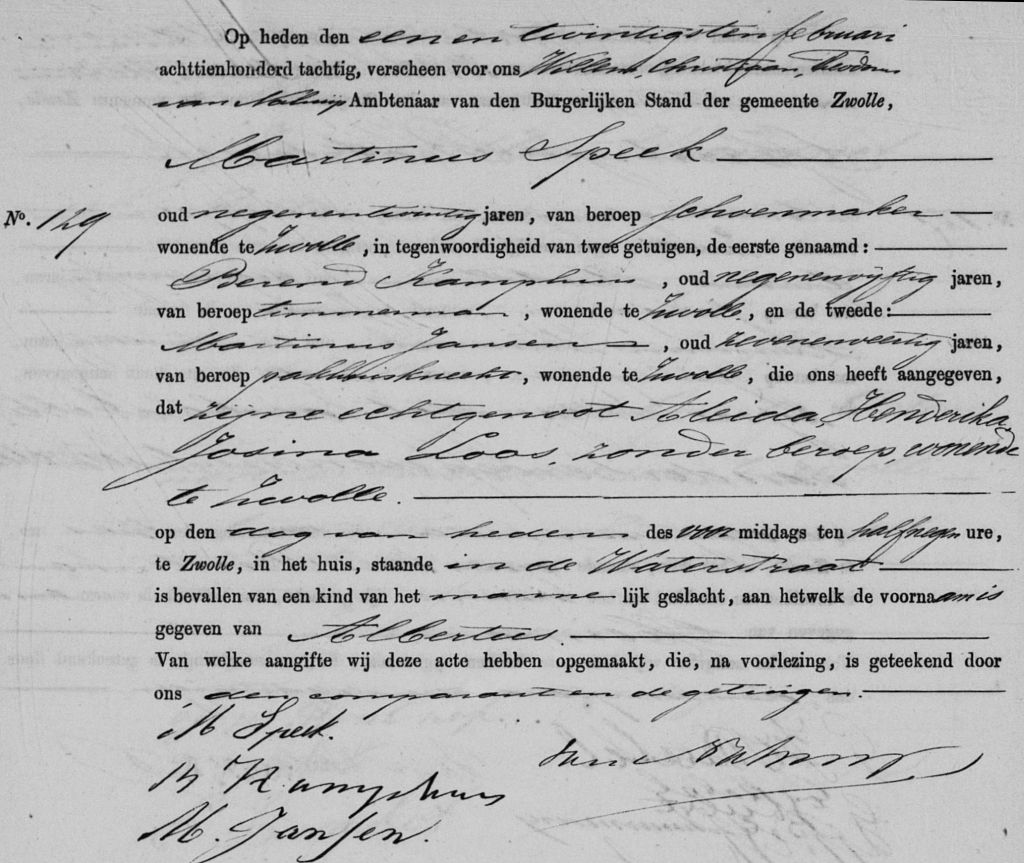 Op heden den een en twintigsten februari
achttienhonderd tachtig, verscheen voor ons Willem, Christiaan, Theodoor
van Ambtenaar van den Burgerlijken Stand der gemeente Zwolle,
Martinus Speek
No. 129
oud negenentwintig jaren, van beroep schoenmaker
wonende te Zwolle, in tegenwoordigheid van twee getuigen, de eerste genaamd:
Berend Kamphuis, oud negenenvyftig jaren,
van beroep timmerman, wonende te Zwolle, en de tweede:
Martinus Jansen, oud zevenenveertig jaren,
van beroep pakhuisknecht, wonende te Zwolle, die ons heeft aangegeven,
dat zijne echtgenoot Aleida, Henderika,
Josina Loos, zonder beroep, wonende
te Zwolle.
op den dag van heden des voor middags ten half negen ure,
te Zwolle, in het huis, staande in de Waterstraat
is bevallen van een kind van het manne lijk geslacht, aan hetwelk de voornaam is
gegeven van Albertus.
Van welke aangifte wij deze acte hebben opgemaakt, die, na voorlezing, is geteekend door
ons, den comparant en de getuigen.
M Speek.
B Kamphuis
M. Jansen.